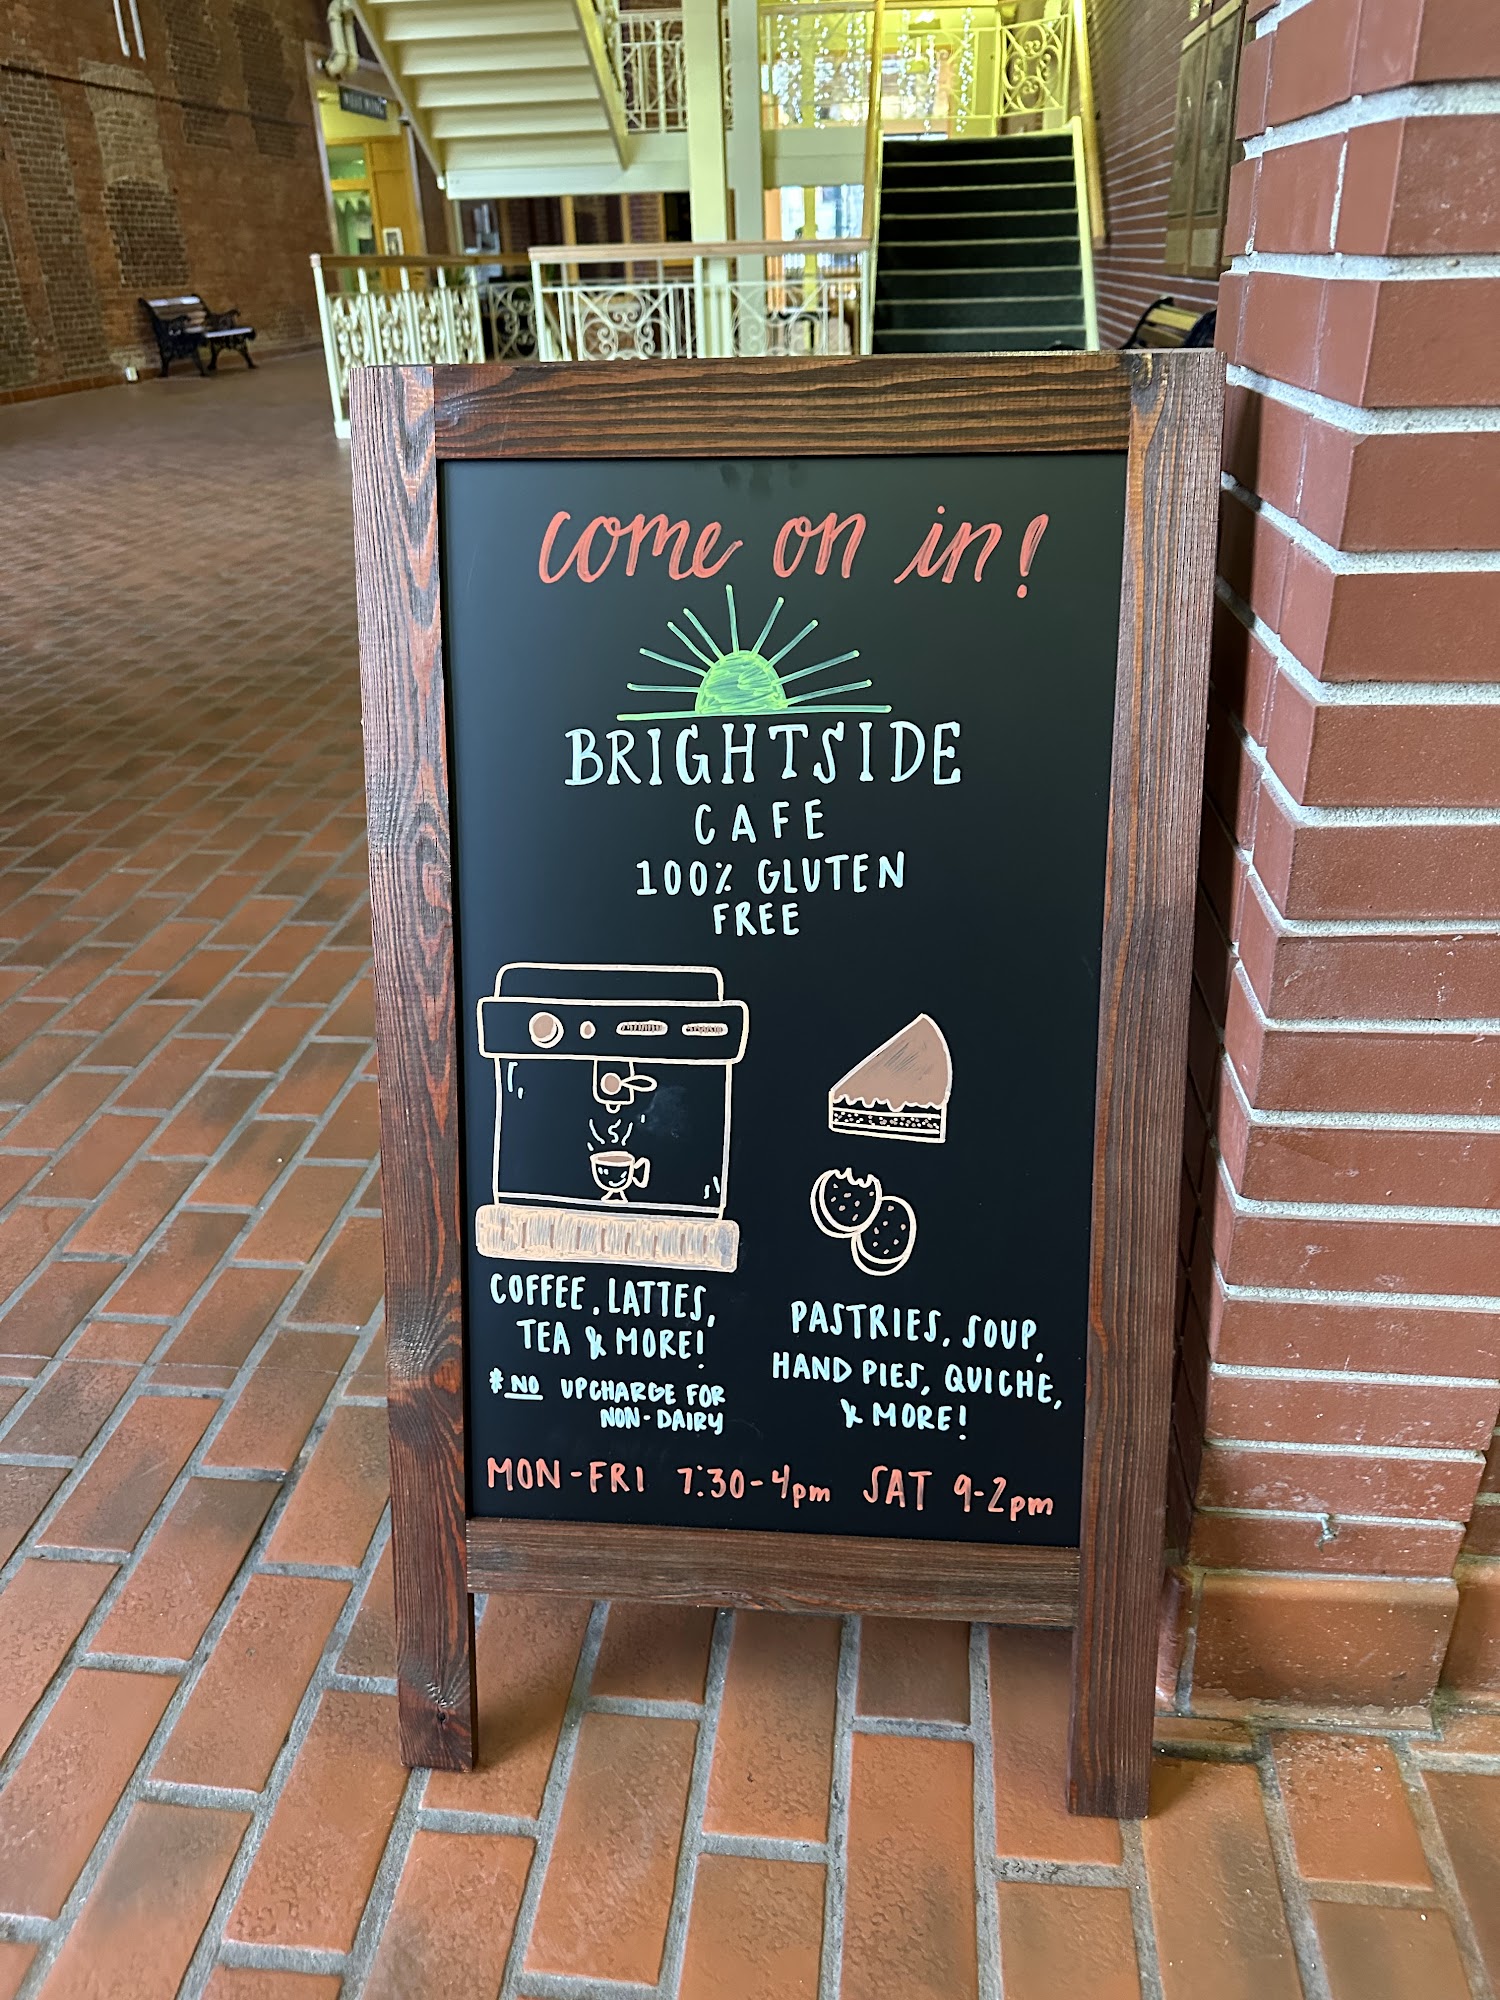 come on in!
BRIGHTSIDE
CAFE
100% GLUTEN
FREE
COFFEE, LATTES,
TEA & MORE!
* NO UPCHARGE FOR
NON-DAIRY
PASTRIES, SOUP,
HAND PIES, QUICHE,
& MORE!
MON-FRI 7:30-4pm SAT 9-2pm